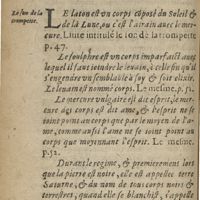 Le son de la
trompette.
LE laton est vn corps cõposé du Soleil &
de la Lune, & c'est l'airain auec le mer-
cure. Liure intitulé le sõ de la trompette
p. 47.
Le soulphre est vn corps imparfaict auec
lequel il faut ioindre le leuain, à celle fin qu'il
s'engendre vn semblable à soy & soit elixir.
Le leuain est nommé corps. Le mesme, p. 51.
Le mercure vulgaire est dit esprit, le mer-
cure des corps est dit ame, & l'esprit ne se
ioint point au corps que par le moyen de l'a-
me, comme aussi l'ame ne se ioint point au
corps que moyennant l'esprit. Le mesme.
p. 52.
Durant le regime, & premierement lors
que la pierre est noire, elle est appellee terre
Saturne, & du nom de tous corps noirs &
terrestres, quand elle se blanchist, s'appelle